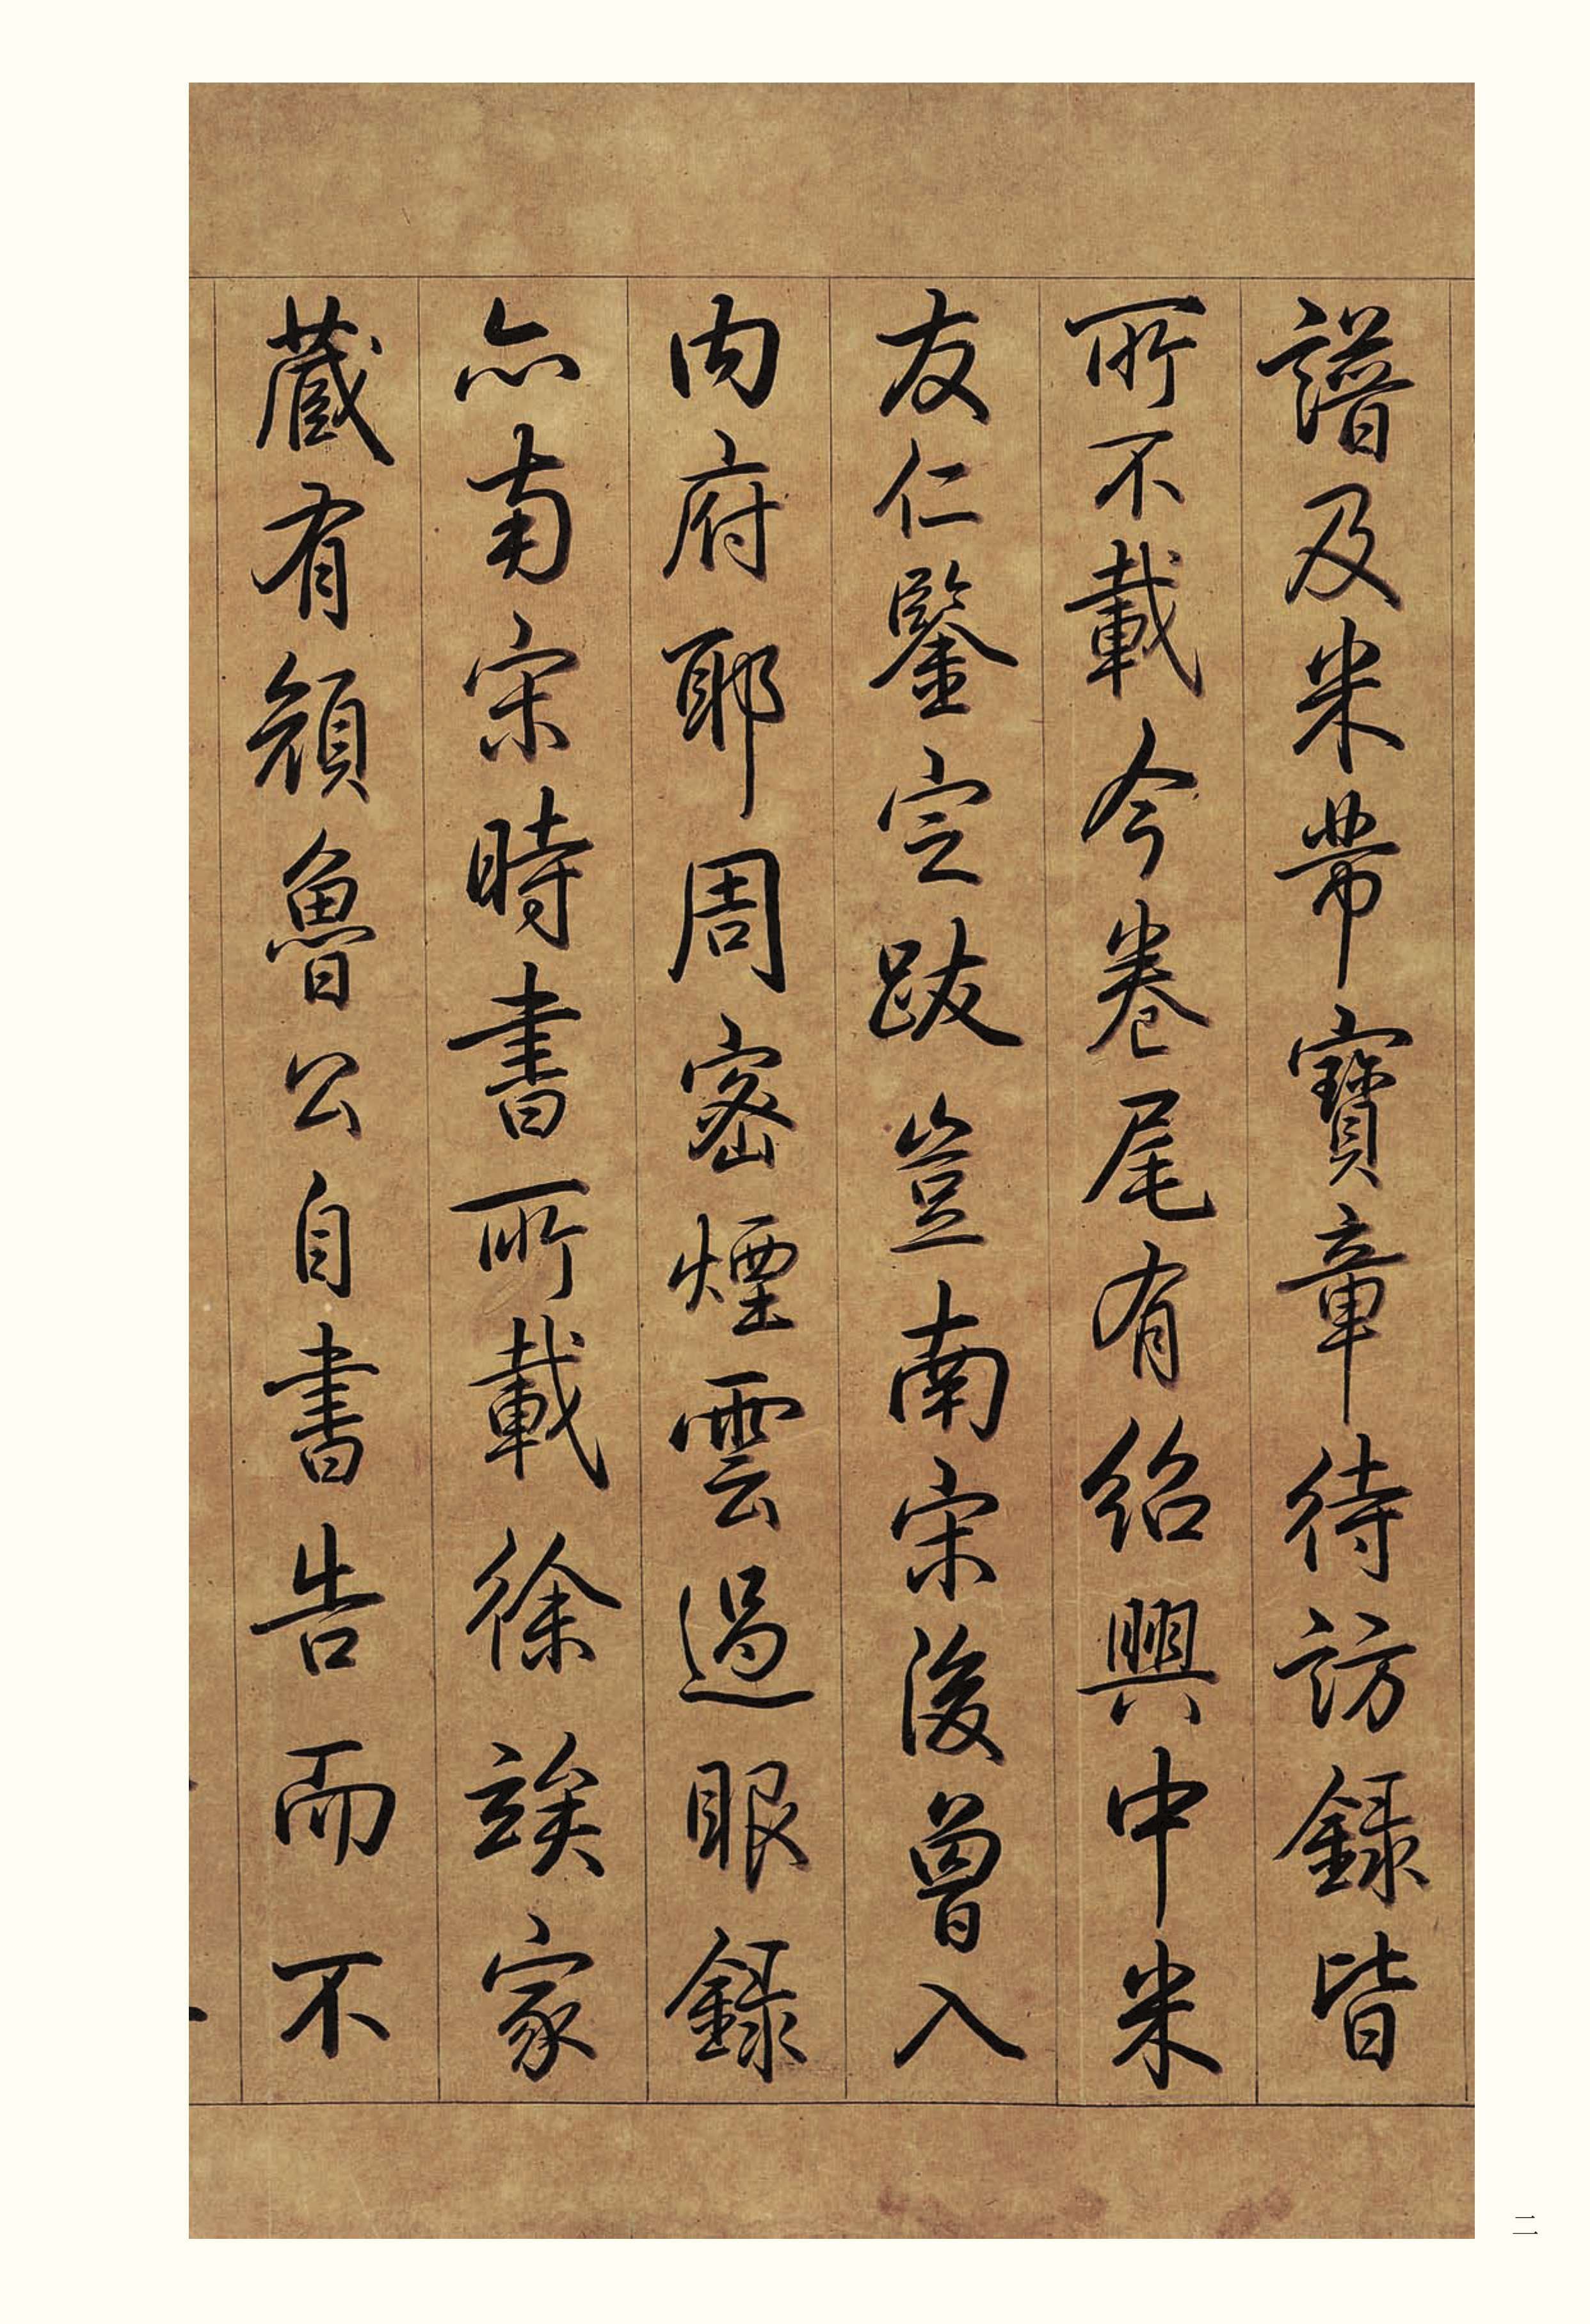 譜及米芾寶章待訪錄皆
所不載今卷尾有紹興中米
友仁鑒定跋豈南宋後曾入
内府耶周密煙雲過眼錄
亦南宋時書所載徐誒家
藏有顏魯公自書告而不
二